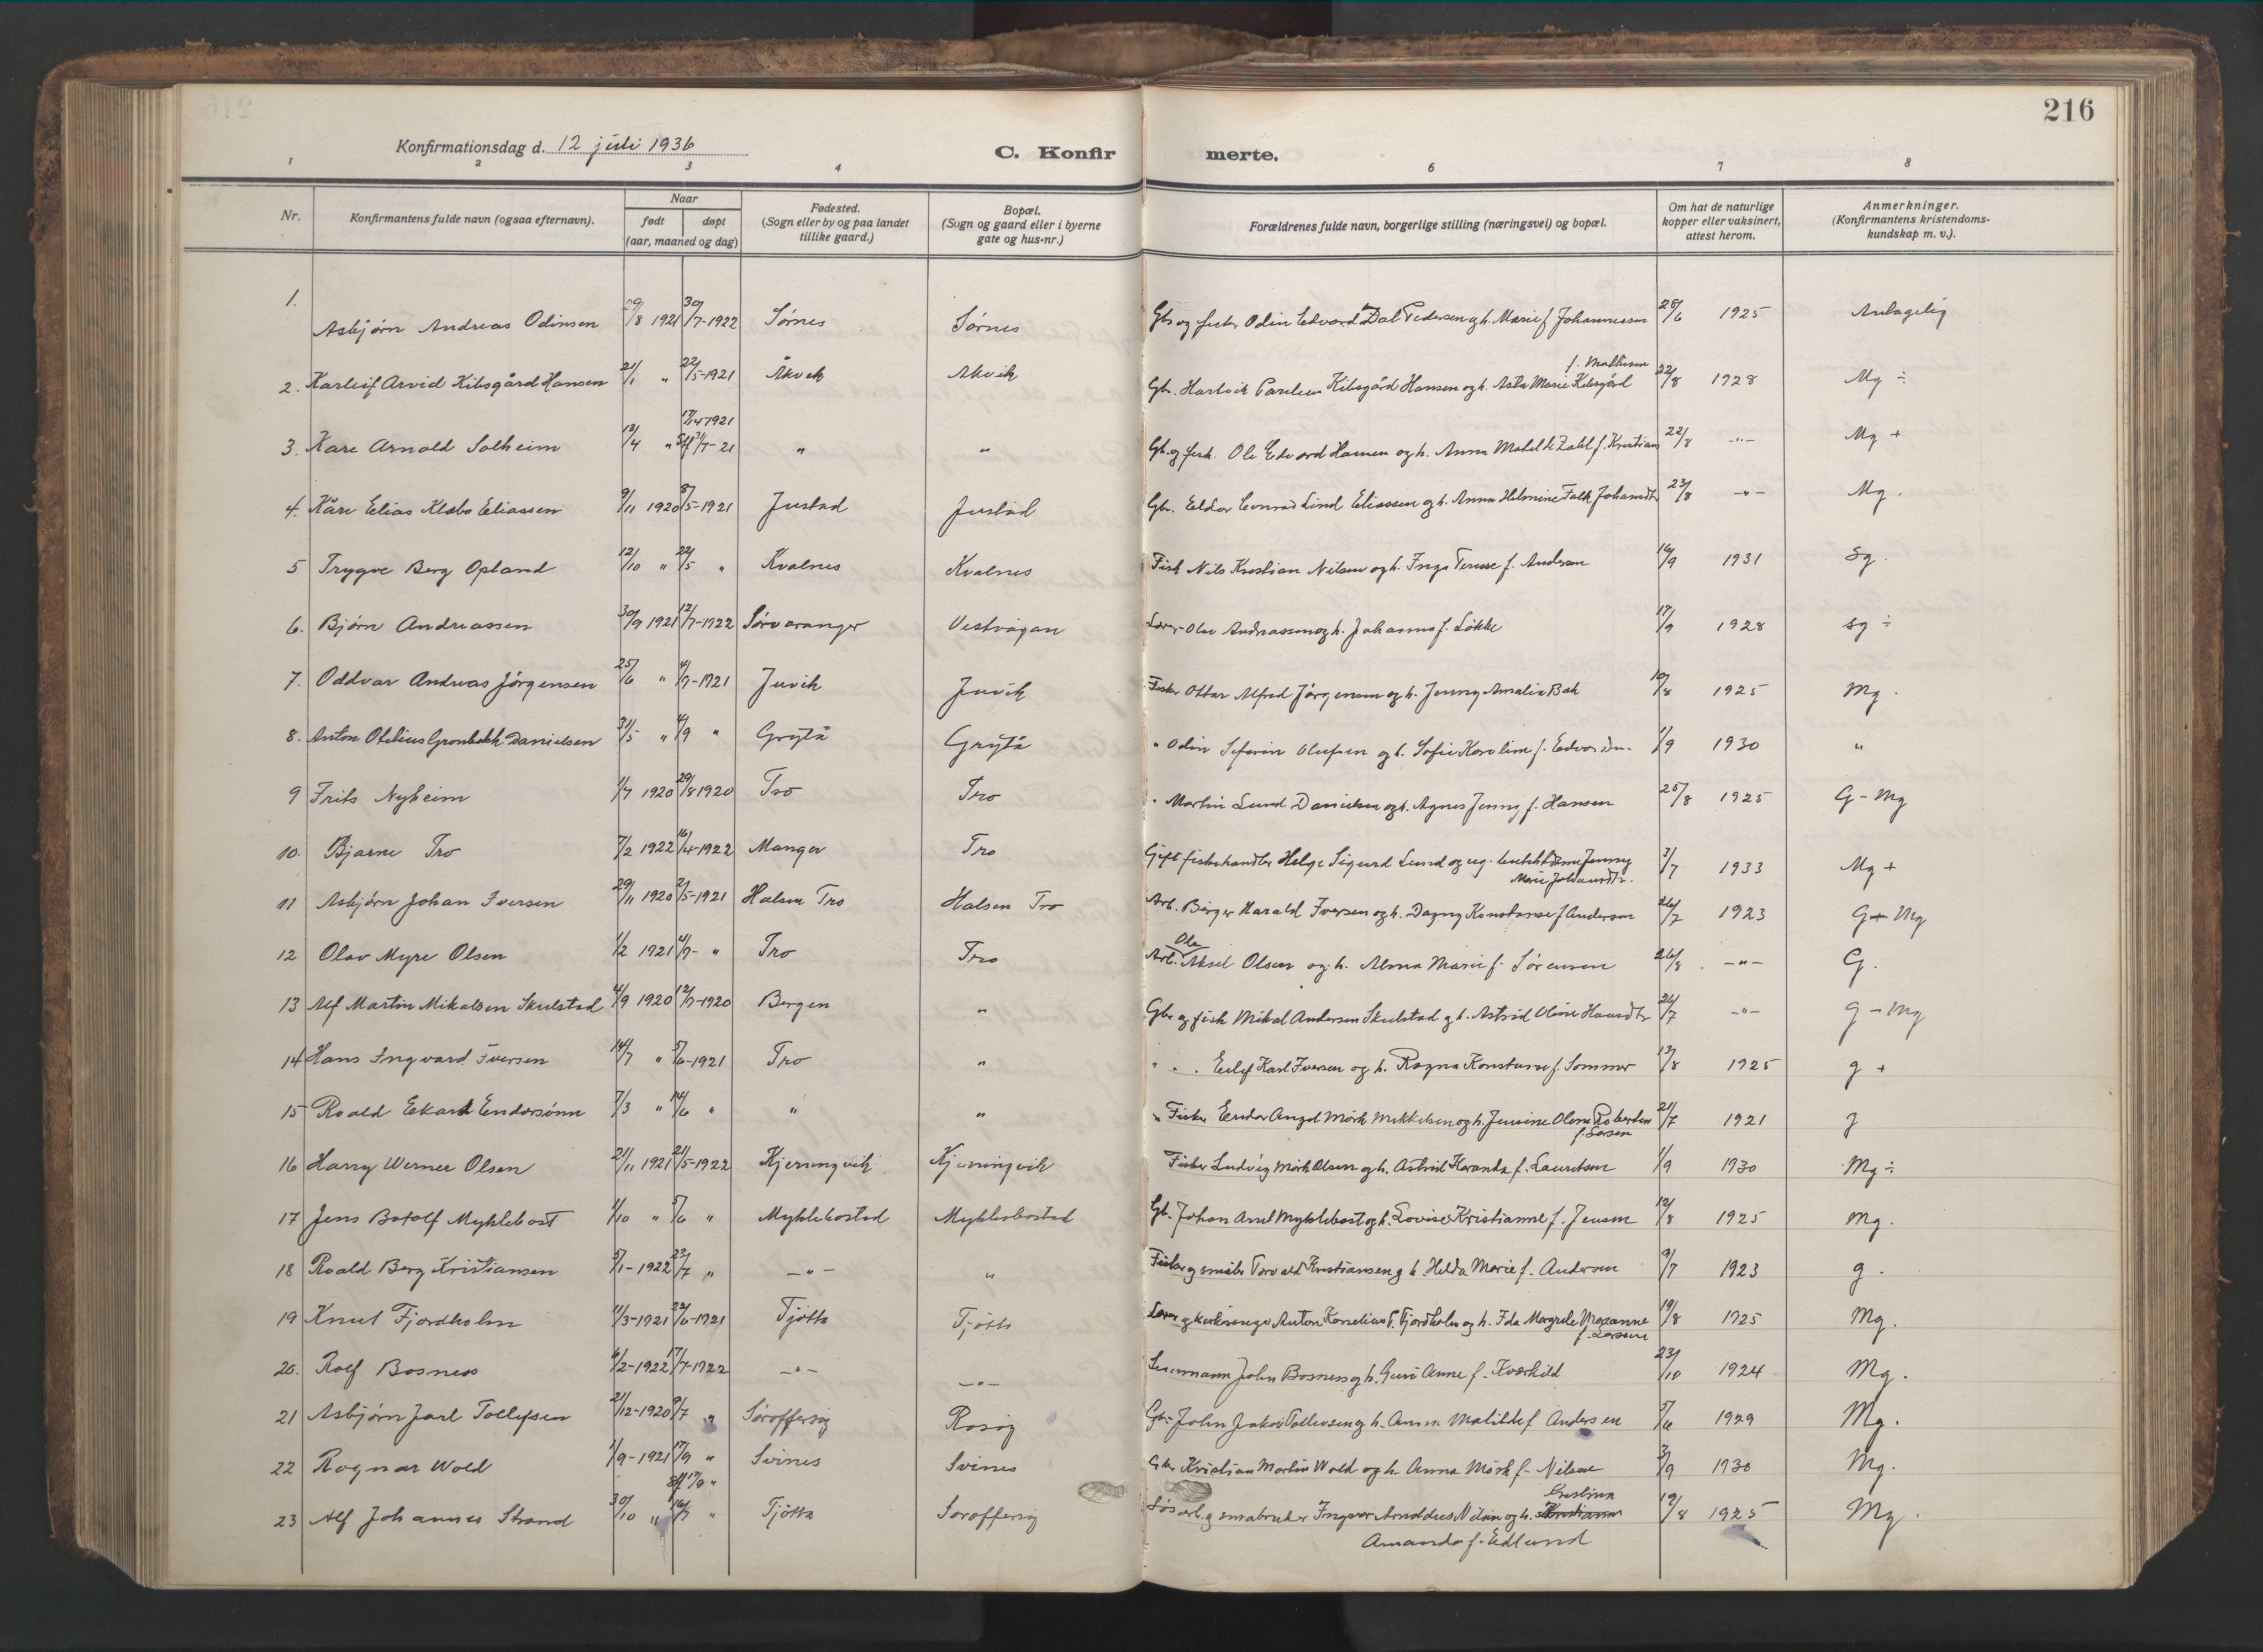 216
Konfirmationsdag d. 12 juli 1936
C. Konfirmerte.
1 2 3 4 6 7 8
Nr.
Konfirmantens fulde navn (ogsaa efternavn).
Naar
født døpt
(aar, maaned og dag)
Fødested.
(Sogn eller by og paa landet
tillike gaard.)
Bopæl.
(Sogn og gaard eller i byerne
gate og hus-nr.)
Forældrenes fulde navn, borgerlige stilling (næringsvei) og bopæl.
Om hat de naturlige
kopper eller vaksinert,
attest herom.
Anmerkninger.
(Konfirmantens kristendoms-
kundskap m. v.).
1. Asbjørn Andreas Odinsen 29/8 1921 30/7-1922 Sørnes Sørnes Gbr og fisker Odin Edvard Dal Pedersen og h. Marie f Johannessen 28/6 1925 Antagelig
f. Mathisen
2. Karleif Arvid Kibsgård Hansen 21/1 " 22/5-1921 Åkvik Åkvik Gbr. Hartvik Kibsgård Hansen og h. Asta Marie Kibsgård 22/8 1928 Mg ÷
17/4 1921
3. Kare Arnold Solheim 13/4 " 21 " " Gb. og fisk. Ole Edvard Hansen og h. Anna Zahl f. Kristians 22/8 -"- Mg +
4. Kåre Elias Klæbo Eliassen 9/11 1920 8/5-1921 Justad Justad Gbr. Lind Eliassen og h. Anna Falk Johansdtr 23/8 -"- Mg.
5 Trygve Berg Opland 12/10 " 22/5 " Kvalnes Kvalnes Fisk Nils Kristian Nilsen og h. Inga f. Andersen 16/9 1931 Sg.
6. Bjørn Andreassen 30/9 1921 12/7-1922 Sørvaranger Vestvågan Lærer Olav Andreassen og h. Johanna f. Løkke 17/9 1928 Sg ÷
7. Oddvar Andreas Jørgensen 25/6 " 4/9-1921 Juvik Juvik Fisker Ottar Alfred Jørgensen og h. Jenny Amalia Bak 10/8 1925 Mg.
8. Anton Otelius Grønbekk Danielsen 31/5 " 4/9 " Grytå Grytå " Odin Seferin Olufsen og h. Sofie Karoline f. 1/9 1930 "
9 Frits Nyheim 1/7 1920 29/8 1920 Tro Tro " Martin Lund Danielsen og h. Agnes Jenny f. Hansen 25/8 1925 G - Mg
10. Bjarne Tro 7/2 1922 16/4-1922 Manger Tro Gift fiskehandler Helge Sigurd Lund og ug. Jenny 3/7 1933 Mg +
Marie Johansdtr.
11 Asbjørn Johan Iversen 29/11 1920 2/5-1921 Halsen Tro Halsen Tro Arb. Birger Harald Iversen og h. Dagny Konstanse f Andersen 26/7 1923 G + Mg
Ole
12 Olav Myre Olsen 1/2 1921 4/9- " Tro Tro Arb. Aksel Olsen og h. Alma Marie f. Sørensen 26/8 -"- G.
13 Alf Martin Mikalsen Skulstad 4/9 1920 12/9-1920 Bergen " Gbr og fisk Mikal Andersen Skulstad og h. Astrid Oline Hansdtr 26/7 -"- g - Mg
14 Hans Ingvard Iversen 14/7 " 5/6-1921 Tro " " " Eilif Karl Iversen og h. Ragna Konstanse f. Sommer 13/8 1925 g +
15 Roald Ekart Endersønn 7/3 " 14/6 " " " " Fisker Endor Angel Mørk Mikkelsen og h. Jensine Olene Robertine 21/7 1921 g
f. Larsen
16 Harry Werner Olsen 21/11 1921 21/5-1922 Kjerringvik Kjerringvik Fisker Ludvig Mørk Olsen og h. Astrid f. Lauritsen 1/9 1930 Mg ÷
17 Jens Botolf Myklebost 1/10 " 5/6 " Myklebostad Myklebostad Gb. Johan Arnt Myklebost og h. Lovise Kristianne f. Jensen 12/8 1925 Mg.
18 Roald Berg Kristiansen 5/1-1922 23/7 " -"- " Fisker og småbr Torvald Kristiansen og h. Helda Marie f. Andersen 9/7 1923 g.
19 Knut Fjordholm 11/3-1921 22/6-1921 Tjøtta Tjøtta Lærer og kirkesanger Anton Kornelius P. Fjordholm og h. Ida Margrete 19/8 1925 Mg.
f. Larsen
20. Rolf Bosness 6/2-1922 17/7-1922 -"- -"- Lensmann John Bosness og h. Guri Anne f. Kværkild 23/10 1924 Mg.
21 Asbjørn Jarl Tollefsen 21/12-1920 9/7 " Sørofferøy Rosøy Gbr John Jakob Tollevsen og h. Anna Matilde f Andersen 5/6 1929 Mg.
22 Ragnar Wold 1/9-1921 17/9 " Svines Svines Gbr Kristian Martin Wold og h. Anna Mørk f. Nilsen 3/9 1930 Mg.
Kristina
23 Alf Johannes Strand 30/10 " 16/7 " Tjøtta Sørofferøy Løsarb. og småbruker Ingvar Arnoldus Nilsen og h. Kristianna 19/8 1925 Mg.
Amanda f. Edlund